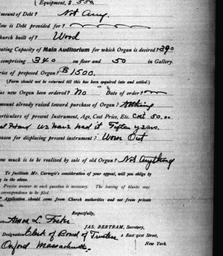 Equipment, $ 500
Amount of Debt? Not Any.
How is Debt provided for?
Church built of? Wood
Seating Capacity of Main Auditorium for which Organ is desired? 390
comprising 340 on floor and 50 in Gallery.
Price of proposed Organ $1500.
(Form should not be returned till this has been inquired into and added.)
Has new Organ been ordered? No Date of order
Amount already raised toward purchase of Organ? Nothing
Particulars of present Instrument, Age, Cost Price, Etc. Cost 50.00
we have had it fifteen years.
Reason for displacing present instrument? Worn Out
How much is to be realized by sale of old Organ? Not Anything
To facilitate Mr. Carnegie's consideration of your appeal, will you oblige by
in the above.
Precise answer to each question is necessary. The leaving of blanks may
correspondence to be
Application should come from Church authorities and not from private
Respectfully,
Amos L.
JAS. BERTRAM, Secretary,
Designate Clerk of Board of Trustees 2 East 91st Street,
Oxford Massachusetts. New York.